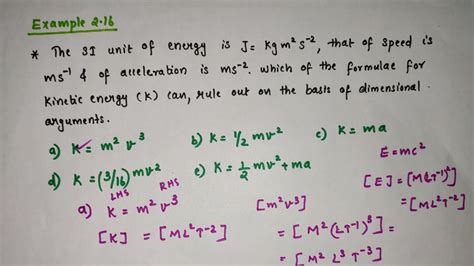 Example 2.16
* The SI unit of energy is J = Kg m² s⁻², that of speed is
ms⁻¹ & of acceleration is ms⁻². which of the formulae for
Kinetic energy (K) can, rule out on the basis of dimensional
arguments.
a) K = m² v³ b) K = 1/2 mv² c) K = ma
d) K = (3/16) mv² e) K = 1/2 mv² + ma
E = mc²
LHS RHS
a) K = m² v³ [m² v³] [E] = [M(LT⁻¹)²]
[K] = [ML²T⁻²] = [M² (LT⁻¹)³] = [ML²T⁻²]
= [M² L³ T⁻³]